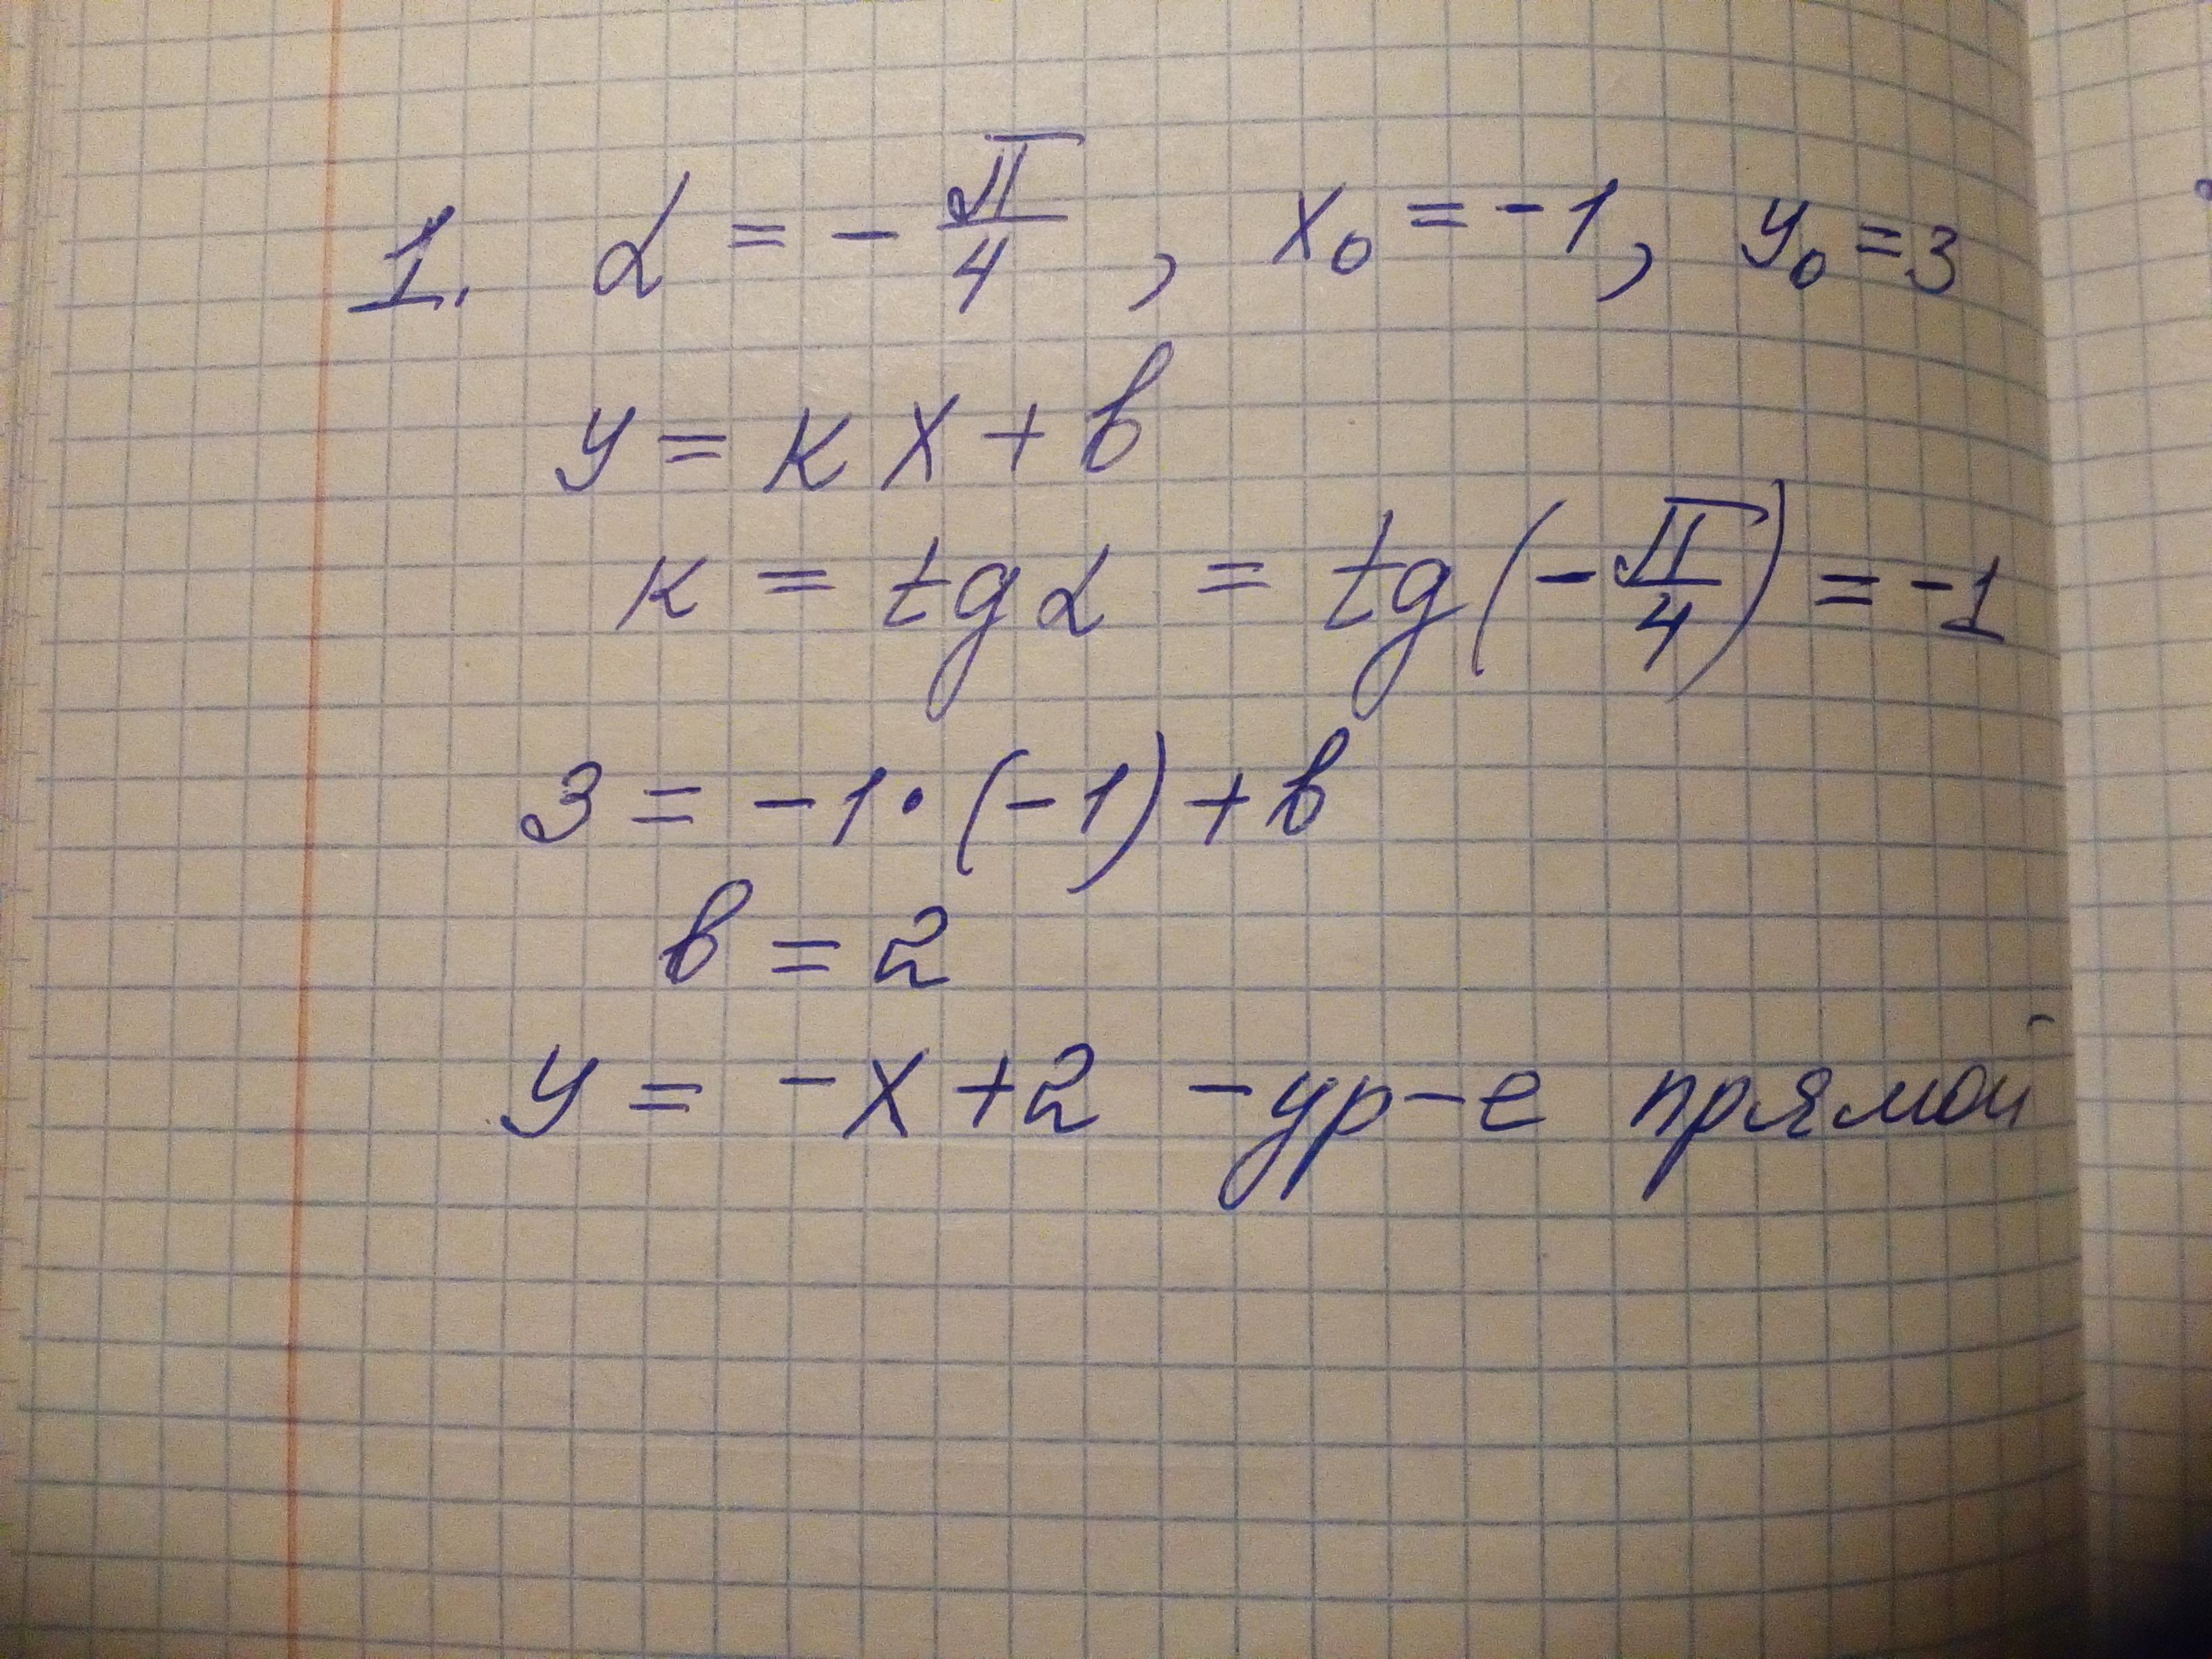 1. α = -π/4, x₀ = -1, y₀ = 3
y = кx + b
к = tg α = tg(-π/4) = -1
3 = -1·(-1) + b
b = 2
y = -x + 2 - ур-е прямой